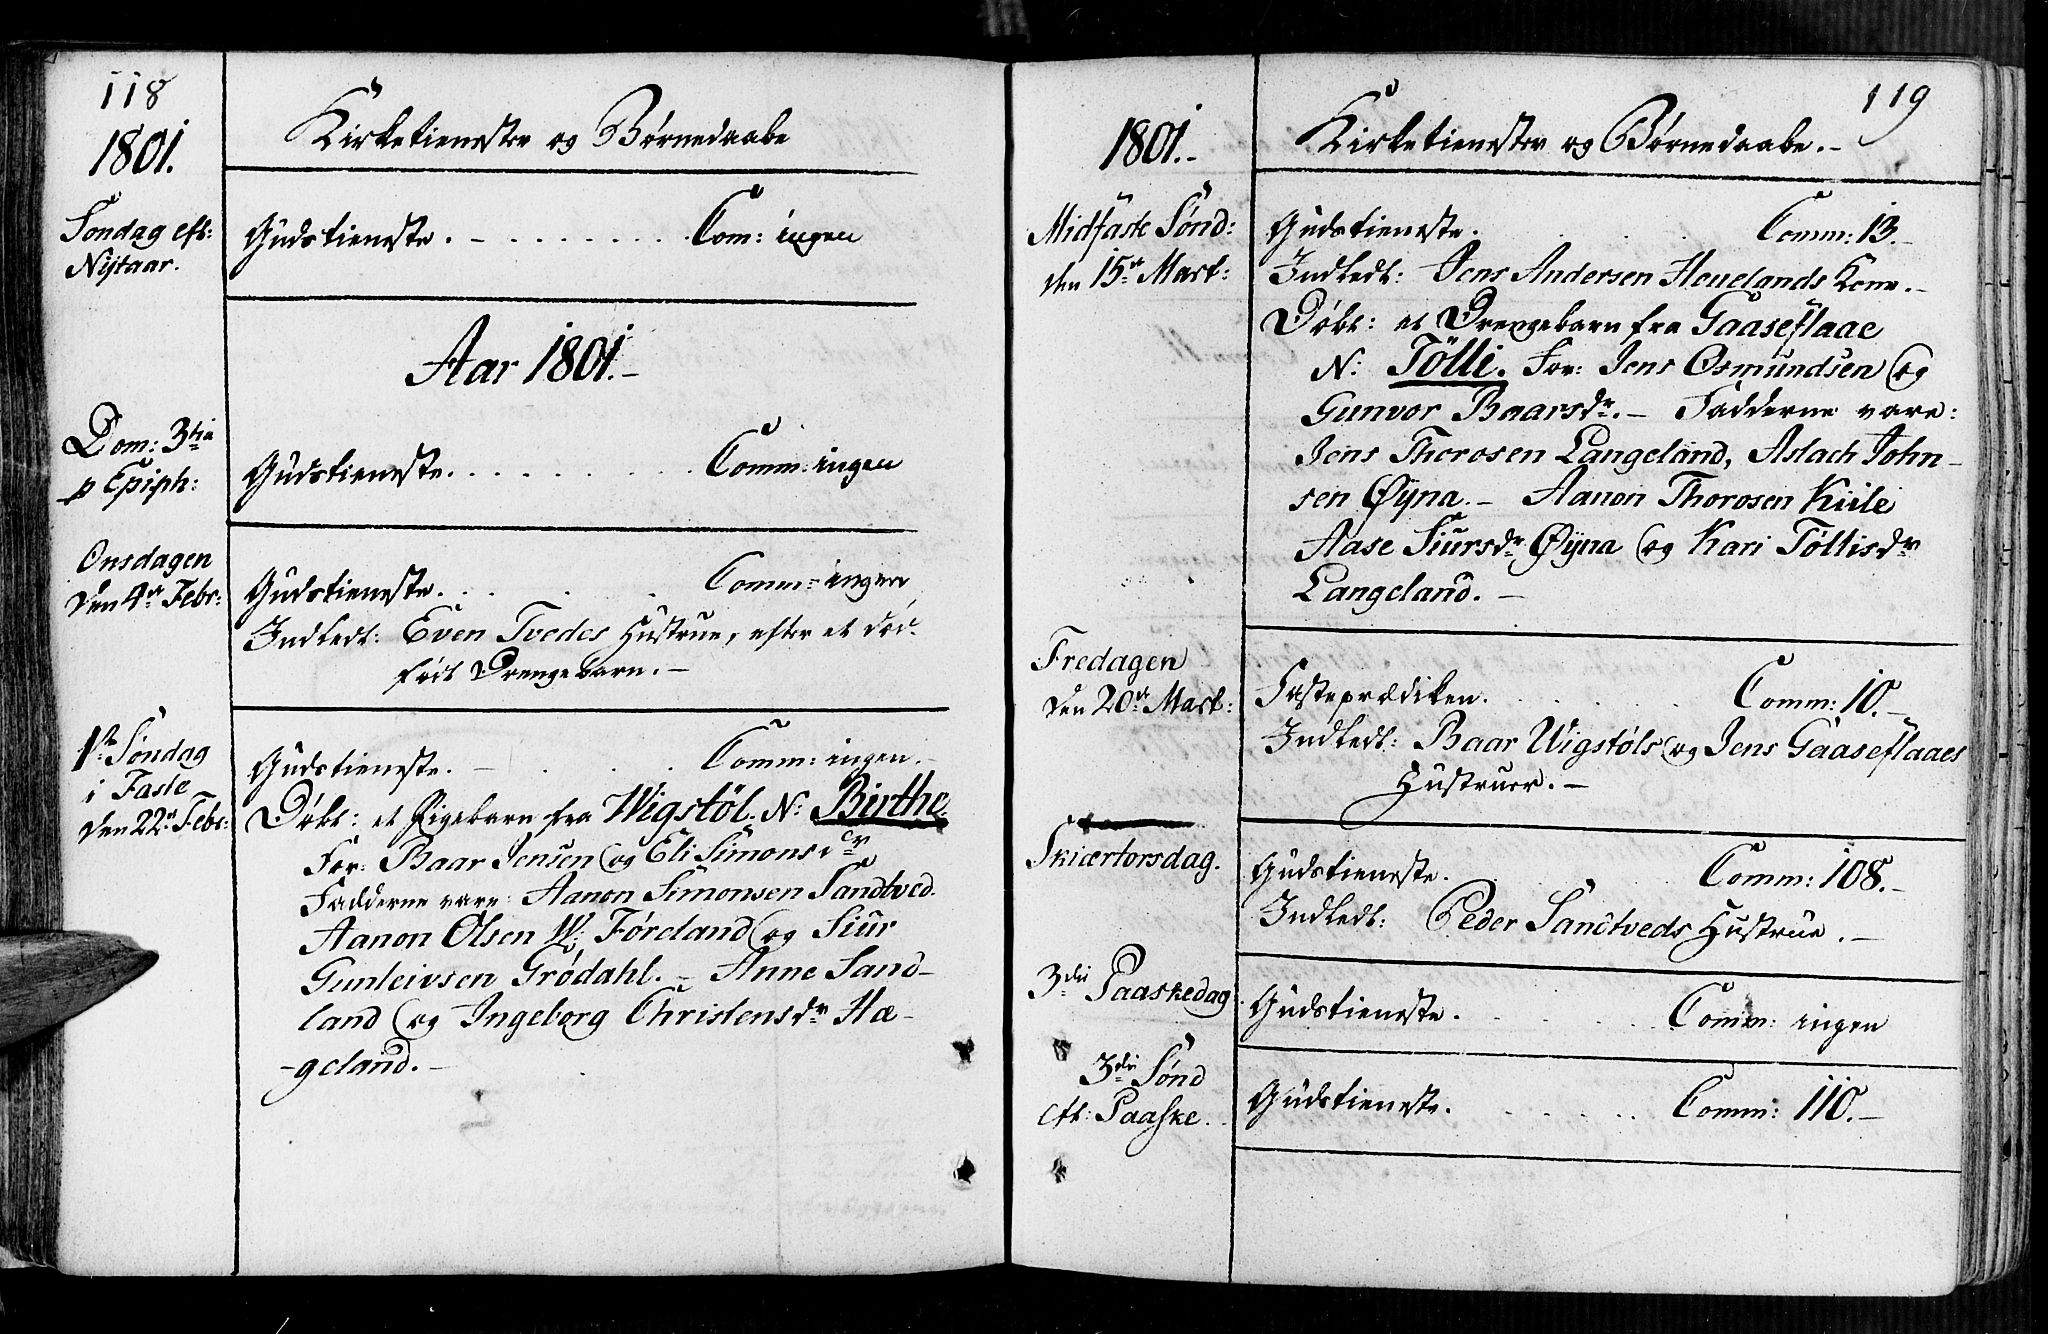 118
1801.
Kirketienester og Børnedaabe
Søndag eft:
Nÿtaar.
Gudstieneste. - . . . . . . . . Com: ingen
Aar 1801.-
Dom: 3tia
p Epiph:
Gudstieneste. . . . . . . . . . Comm: ingen
Onsdagen
den 4de Febr:
Gudstieneste. . . . . Comm: ingen
Indledt: Even Tvedes Hustrue, efter et død-
født Drengebarn. -
1te Søndag
i Faste
den 22de Febr:
Gudstieneste. - . . . . Comm: ingen. -
Døbt: et Pigebarn fra Wigstøl. N: Birthe.
For: Baar Jensen og Eli Simonsdr
Fadderne vare: Aanon Simonsen Sandtved.
Aanon Olsen W: Føreland og Siur
Gunleivsen Grödahl. - Anne Sand-
land og Ingeborg Christensdr Hæ-
-geland. -
119
1801.-
Kirketienester og Børnedaabe. -
Midfaste Sønd:
den 15de Mart:
Gudstieneste. . . . Comm: 13. -
Indledt: Jens Andersen Houelands Kone. -
Døbt: et Drengebarn fra Gaaseflaae
N: Tölli. For: Jens Osmundsen og
Gunvor Baarsdr. - Fadderne vare:
Jens Thorosen Langeland, Aslach John-
sen Øÿna. - Aanon Thorosen Kiile
Aase Siursdr Øÿna og Kari Töllisdr
Langeland. -
Fredagen
den 20de Mart:
Fasteprædiken. . . . . . Comm: 10. -
Indledt: Baar Wigstøls og Jens Gaaseflaaes
Hustruer. -
Skiærtorsdag.
Gudstieneste. . . . . Comm: 108. -
Indledt: Peder Sandtveds Hustrue. -
3die Paaskedag
Gudstieneste. . . . . . Comm: ingen
3die Sønd
eft: Paaske.
Gudstieneste. . . . . . Comm: 110. -